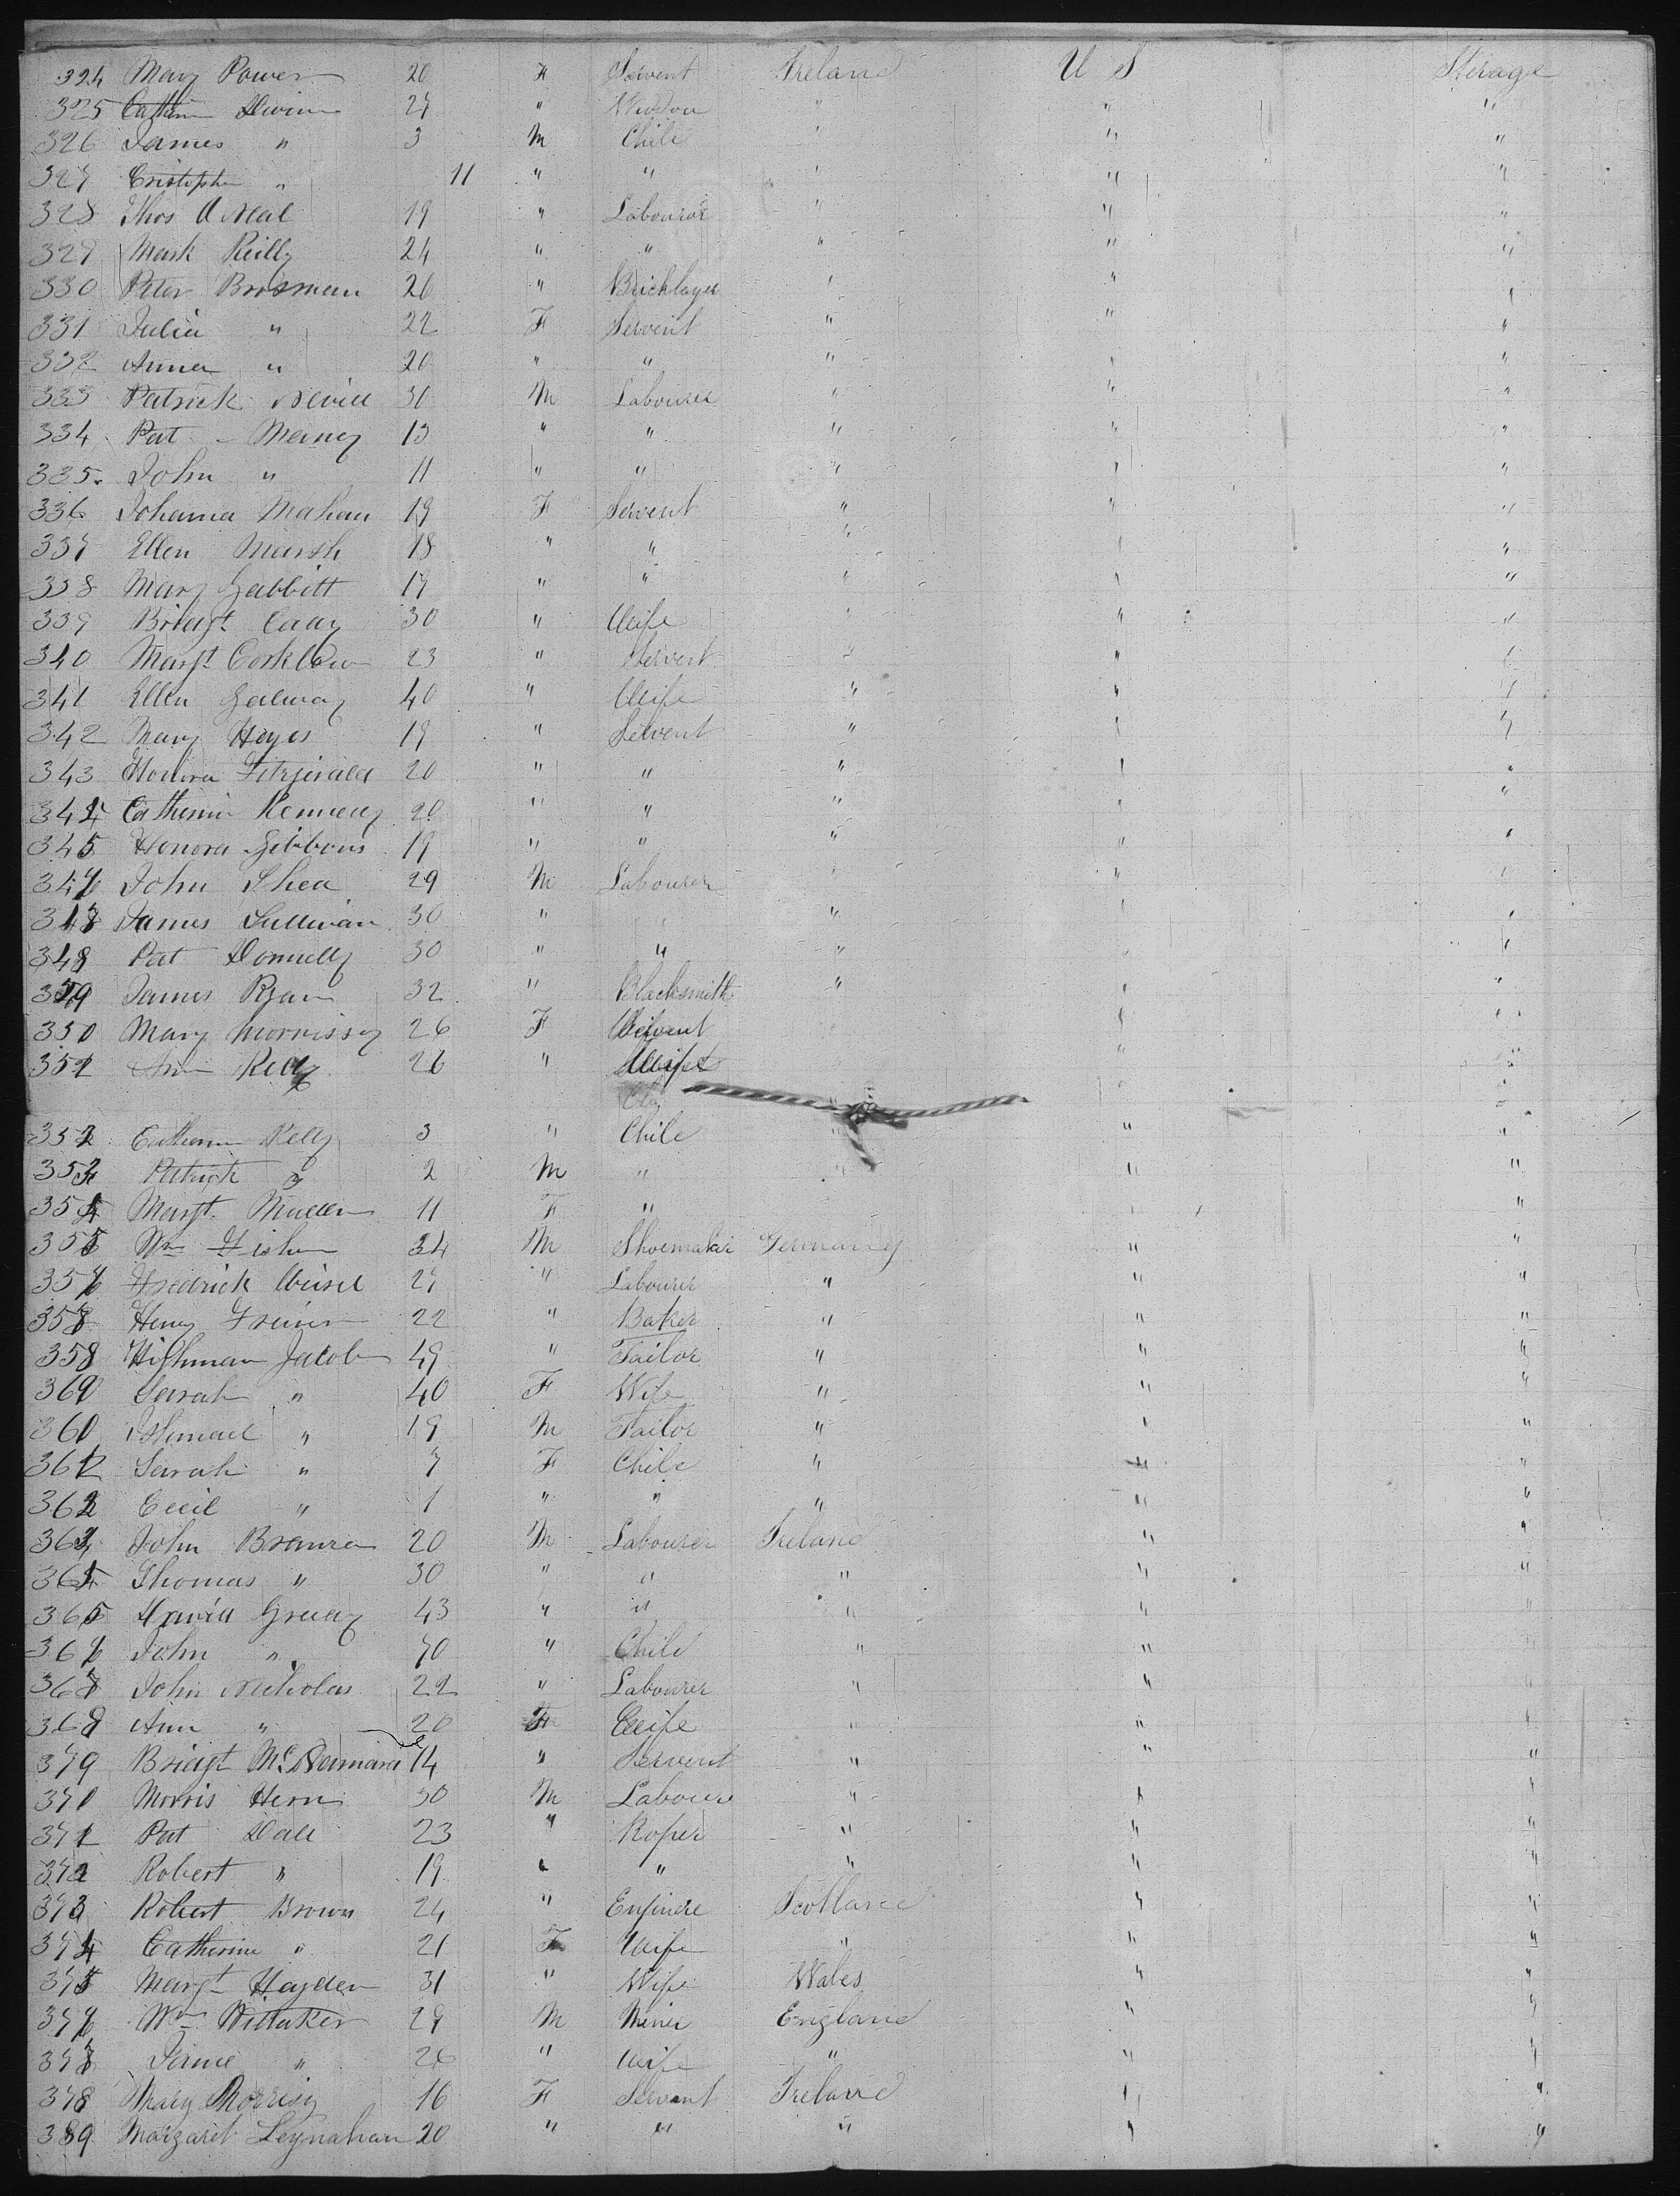 324 Mary Power 20 F Servent Ireland U S Sterage
325 Cathrin Divin 27 " Widdow " " "
326 James " 3 M Chile " " "
327 Cristopher " 11 " " " " "
328 Thos O Neal 19 " Labourer " " "
329 Mark Reilly 24 " " " " "
330 Peter Brosman 26 " Bricklayer " " "
331 Julia " 22 F Servent " " "
332 Anna " 20 " " " " "
333 Patrick Nevill 30 M Labourer " " "
334 Pat Meany 13 " " " " "
335 John " 11 " " " " "
336 Johanna Mahan 19 F Servent " " "
337 Ellen Marsh 18 " " " " "
338 Mary Gabbitt 17 " " " " "
339 Bridgt Cady 30 " Wife " " "
340 Margt 23 " Servent " " "
341 Ellen Galway 40 " Wife " " "
342 Mary Hayes 19 " Servent " " "
343 Honora Fitzjerald 20 " " " " "
344 Catherine Kennedy 20 " " " " "
345 Honora Gibbons 19 " " " " "
346 John Shea 29 M Labourer " " "
347 James Sullivan 30 " " " " "
348 Pat Donnelly 30 " " " " "
349 James Ryan 32 " Blacksmith " " "
350 Mary Morrissy 26 F Servent " "
351 Ann Kelly 26 " Wife " "
352 Catherine Kelly 3 " Chile " " "
353 Patrick " 2 M " " " "
354 Margt Madden 11 F " " "
355 Wm Fisher 34 M Shoemaker Germany " "
356 Fredrick 27 " Labourer " " "
357 Henry 22 " Baker " " "
358 Hithman Jacob 49 " Tailor " " "
360 Sarah " 40 F Wife " " "
360 Ishmael " 19 M Tailor " " "
361 Sarah " 7 F Chile " " "
362 Cecil " 1 " " " " "
363 John 20 M Labourer Ireland " "
364 Thomas " 30 " " " " "
365 David Gready 43 " " " " "
366 John " 10 " Child " " "
367 John Nicholas 22 " Labourer " " "
368 Ann " 20 F Wife " " "
379 Bridgt McNamara 14 " Servent " " "
370 Morris Hern 30 M Labourer " " "
371 Pat Dall 23 " Roper " " "
372 Robert " 19 " " " " "
373 Robert Brown 24 " Enginere Scotland " "
374 Catherine " 21 F Wife " " "
375 Margt Hayden 31 " Wife Wales " "
376 Wm Wittaker 29 M Miner England " "
377 Jane " 26 " Wife " " "
378 Mary Morrisy 16 F Servant Ireland " "
389 Margaret Leynahan 20 " " " " "